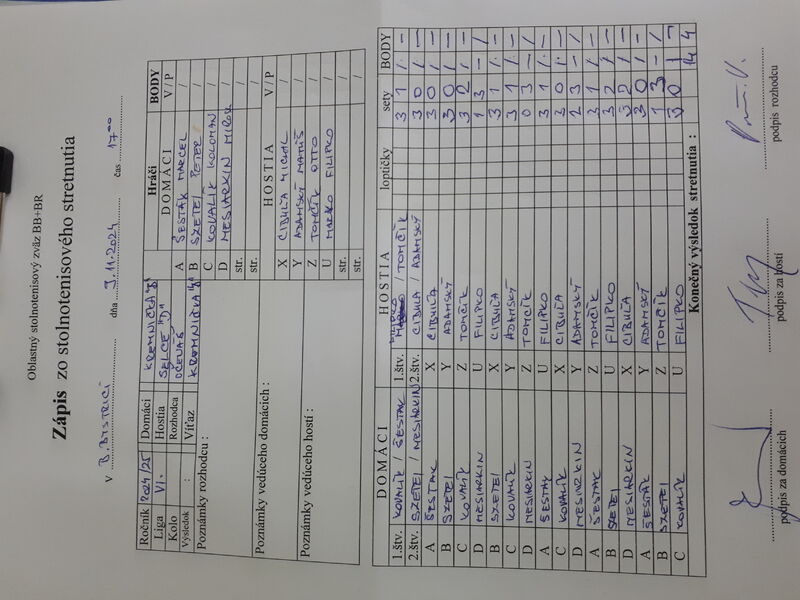 Oblastný stolnotenisový zväz BB+BR
Zápis zo stolnotenisového stretnutia
V B. BYSTRICI dňa 9.11.2024 čas 17⁰⁰
Ročník 2024/25 Domáci KREMNIČKA
Liga VI. Hostia SELCE "D"
Kolo Rozhodca OČENÁŠ
Výsledok : Víťaz KREMNIČKA
Poznámky rozhodcu :
Poznámky vedúceho domácich :
Poznámky vedúceho hostí :
Hráči BODY
DOMÁCI V / P
A ŠESTÁK MARCEL /
B SZETEI PETER /
C KOVALÍK KOLOMAN /
D MESIARKIN MIROSL /
str. /
str. /
HOSTIA V/P
X CIBUĽA MICHAL /
Y ADAMSKÝ MATÚŠ /
Z TOMČÍK OTTO /
U MARKO FILIPKO /
str. /
str. /
DOMÁCI HOSTIA loptičky sety BODY
1.štv. KOVALÍK / ŠESTÁK 1.štv. FILIPKO / TOMČÍK 3 1 / –
2.štv. SZETEI / MESIARKIN 2.štv. CIBUĽA / ADAMSKÝ 3 0 / –
A ŠESTÁK X CIBUĽA 3 0 / –
B SZETEI Y ADAMSKÝ 3 0 / –
C KOVALÍK Z TOMČÍK 3 2 / –
D MESIARKIN U FILIPKO 1 3 – /
B SZETEI X CIBUĽA 3 1 / –
C KOVALÍK Y ADAMSKÝ 3 1 / –
D MESIARKIN Z TOMČÍK 0 3 – /
A ŠESTÁK U FILIPKO 3 1 / –
C KOVALÍK X CIBUĽA 3 0 / –
D MESIARKIN Y ADAMSKÝ 2 3 – /
A ŠESTÁK Z TOMČÍK 3 1 / –
B SZETEI U FILIPKO 3 2 / –
D MESIARKIN X CIBUĽA 3 2 / –
A ŠESTÁK Y ADAMSKÝ 3 0 / –
B SZETEI Z TOMČÍK 1 3 – /
C KOVALÍK U FILIPKO 3 0 / –
Konečný výsledok stretnutia : 14 4
podpis za domácich podpis za hostí podpis rozhodcu